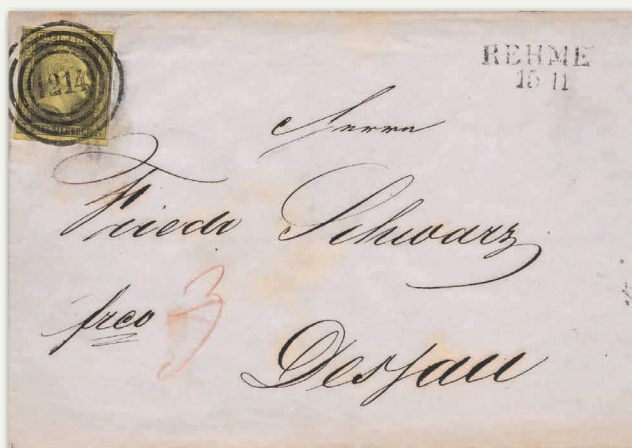 FREIMARKE
1214
REHME
15 11
Herrn
Friedr Schwarz
frco
3
Dessau